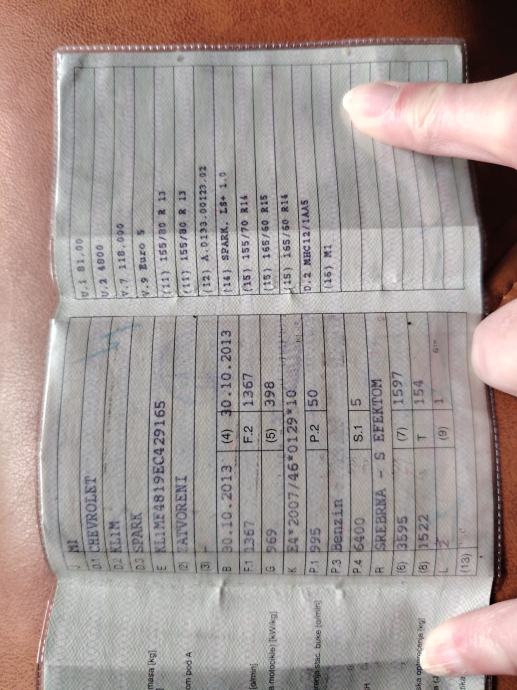 J M1
D.1 CHEVROLET
D.2 KL1M
D.3 SPARK
E KL1MF4819EC429165
(2) ZATVORENI
(3) -
B 30.10.2013 (4) 30.10.2013
F.1 1367 F.2 1367
G 969 (5) 398
K E4*2007/46*0129*10
P.1 995 P.2 50
P.3 Benzin
P.4 6400 S.1 5
R SREBRNA - S EFEKTOM
(6) 3595 (7) 1597
(8) 1522 T 154
L 2 (9) 1
(13)
U.1 81.00
U.2 4800
V.7 118.000
V.9 Euro 5
(11) 155/80 R 13
(11) 155/80 R 13
(12) A.0133.00123.02
(14) SPARK, LS+ 1.0
(15) 155/70 R14
(15) 165/60 R15
(15) 165/60 R14
D.2 MHC12/1AA5
(16) M1
masa [kg]
om pod A
o/min]
motocikle) [kW/kg]
nja stac. buke [o/min]